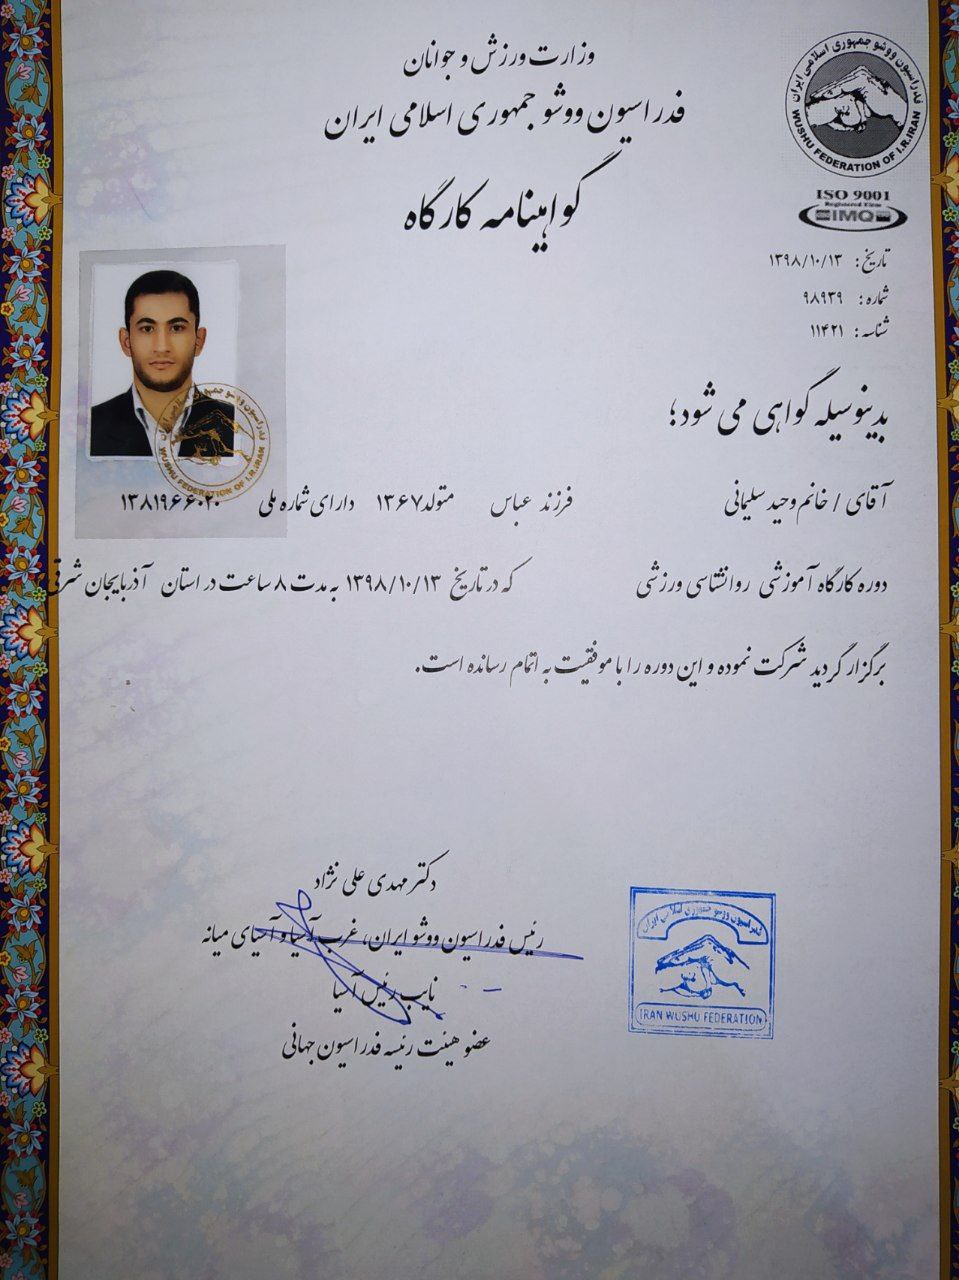 وزارت ورزش و جوانان
فدراسیون ووشو جمهوری اسلامی ایران
گواهینامه کارگاه
فدراسیون ووشو جمهوری اسلامی ایران
WUSHU FEDERATION OF I.R.IRAN
ISO 9001
Registered Firm
IMQ
تاریخ: ۱۳۹۸/۱۰/۱۳
شماره: ۹۸۹۳۹
شناسه: ۱۱۴۲۱
فدراسیون ووشو جمهوری اسلامی ایران
WUSHU FEDERATION OF I.R.IRAN
بدینوسیله گواهی می شود؛
آقای / خانم وحید سلیمانی فرزند عباس متولد ۱۳۶۷ دارای شماره ملی ۱۳۸۱۹۶۶۰۲۰
دوره کارگاه آموزشی روانشناسی ورزشی که در تاریخ ۱۳۹۸/۱۰/۱۳ به مدت ۸ ساعت در استان آذربایجان شرقی
برگزار گردید شرکت نموده و این دوره را با موفقیت به اتمام رسانده است.
دکتر مهدی علی نژاد
رئیس فدراسیون ووشو ایران، غرب آسیا و آسیای میانه
نایب رئیس آسیا
عضو هیئت رئیسه فدراسیون جهانی
فدراسیون ووشو جمهوری اسلامی ایران
IRAN WUSHU FEDERATION